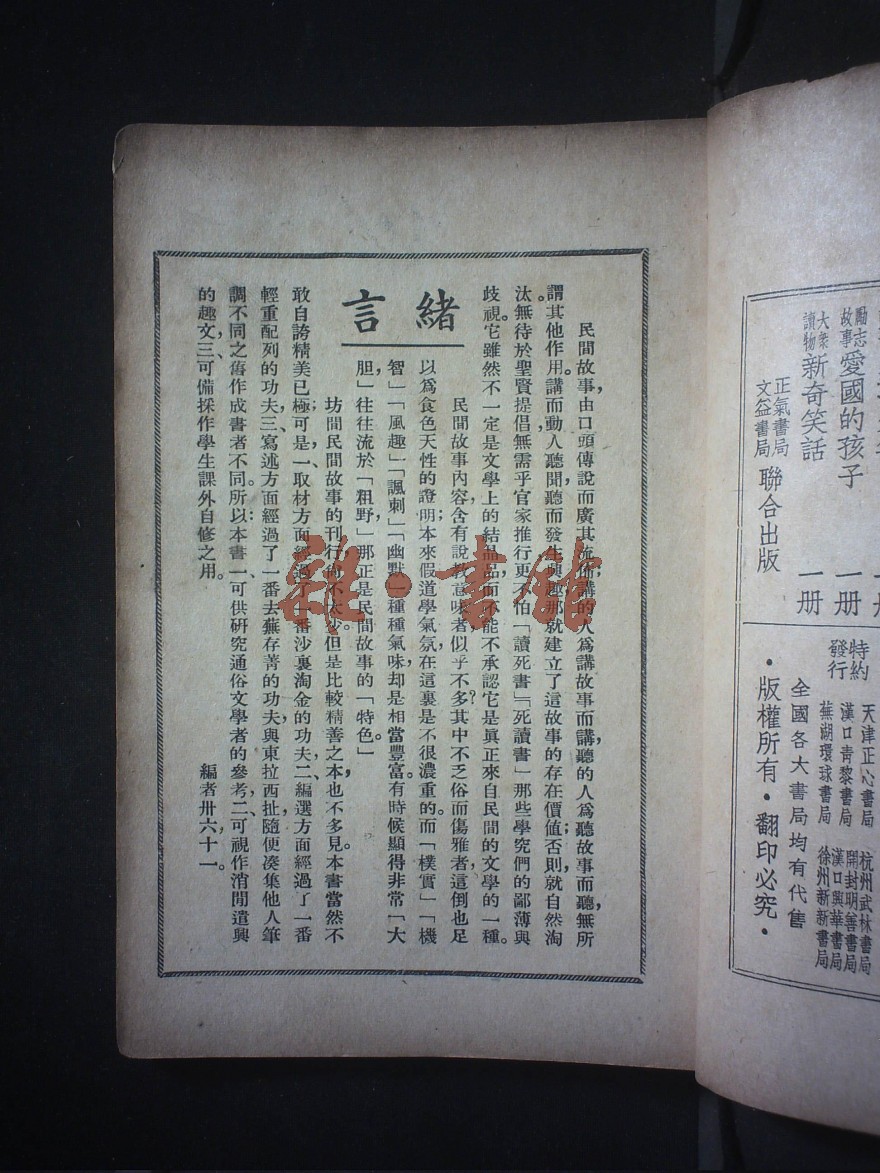 勵志故事 愛國的孩子 一册
大衆讀物 新奇笑話 一册
正氣書局
文益書局
聯合出版
特約發行
天津正心書局 杭州武林書局
漢口青黎書局 開封明善書局
蕪湖環球書局 漢口興華書局
徐州新新書局
全國各大書局均有代售
·版權所有·翻印必究·
緒言
民間故事,由口頭傳說而廣其流佈,講的人爲講故事而講,聽的人爲聽故事而聽,無所
謂其他作用。講而動人聽聞,聽而發生興趣,那就建立了這故事的存在價值;否則就自然淘
汰。無待於聖賢提倡,無需乎官家推行,更不怕「讀死書」「死讀書」那些學究們的鄙薄與
歧視。它雖然不一定是文學上的結晶品,而不能不承認它是眞正來自民間的文學的一種。
民間故事內容,含有說教意味者,似乎不多?其中不乏俗而傷雅者,這倒也足
以爲食色天性的證明;本來假道學氣氛,在這裏是不很濃重的。而「樸實」「機
智」「風趣」「諷刺」「幽默」種種氣味,却是相當豐富。有時候顯得非常「大
胆」往往流於「粗野」,那正是民間故事的「特色」。
坊間民間故事的刊行尙不太少,但是比較精善之本,也不多見。本書當然不
敢自誇精美已極;可是一、取材方面經過了一番沙裏淘金的功夫,二、編選方面經過了一番
輕重配列的功夫,三、寫述方面經過了一番去蕪存菁的功夫,與東拉西扯,隨便凑集他人筆
調不同之舊作成書者不同。所以本書:一、可供研究通俗文學者的參考,二、可視作消閒遣興
的趣文,三、可備採作學生課外自修之用。
編者卅六,十一。
雜·書館